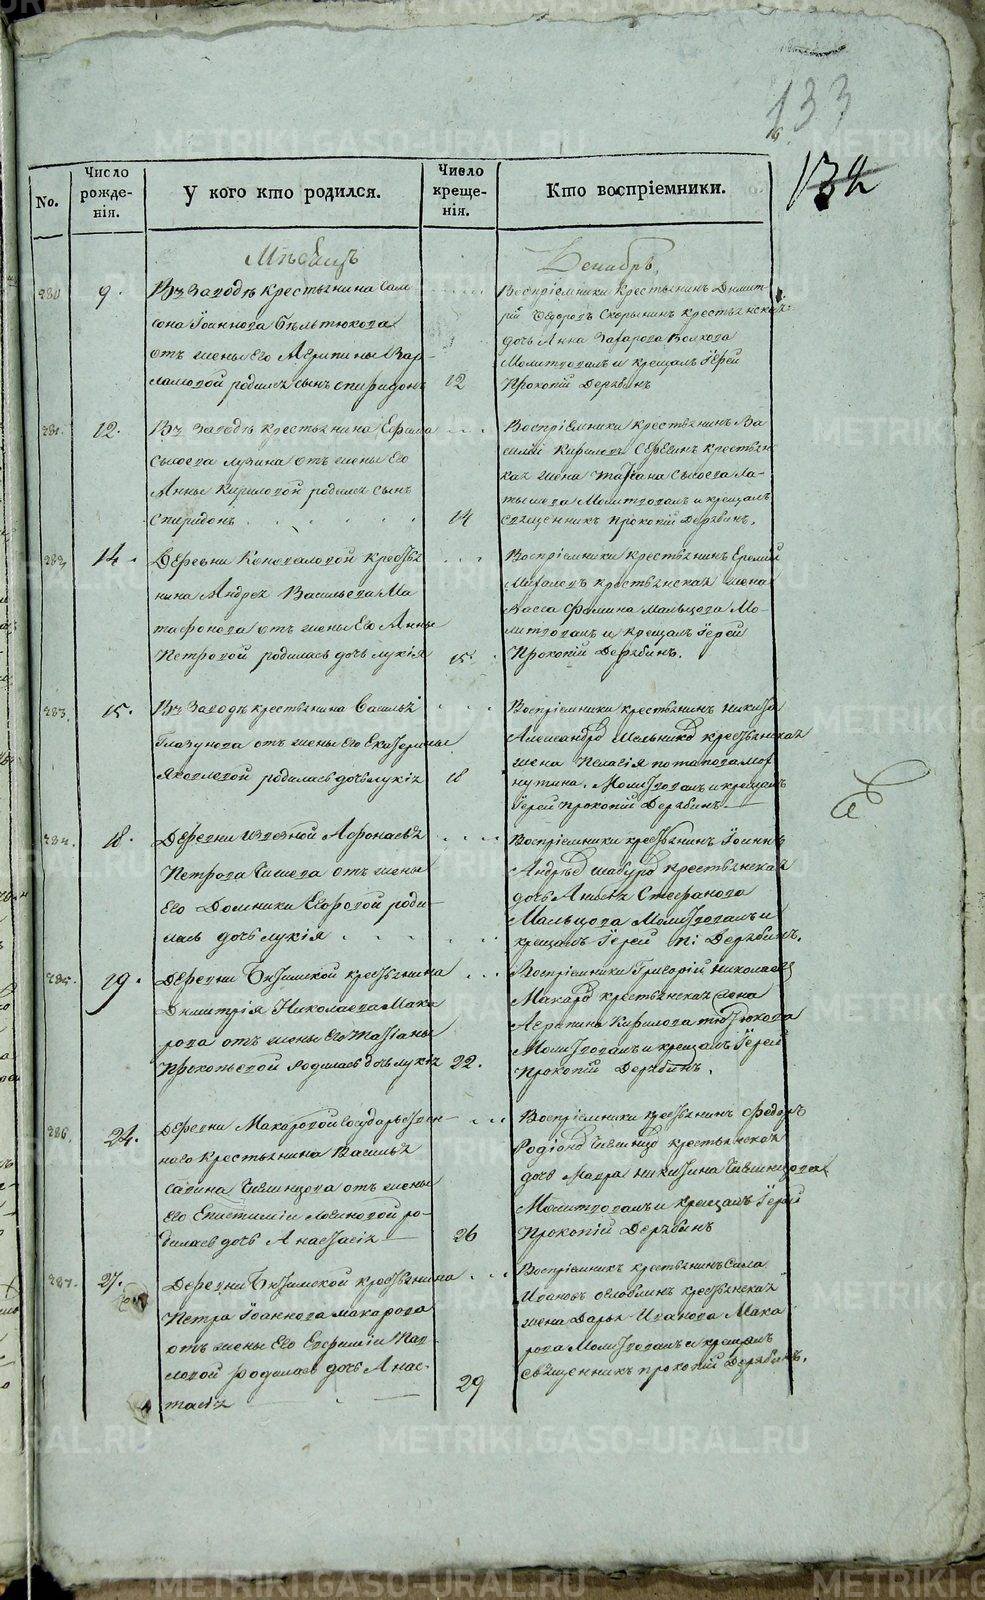 133
132
No.
Число рожде-нія.
У кого кто родился.
Число креще-нія.
Кто воспріемники.
Мѣсяцъ
Декабрь
280
9.
Въ Заводѣ крестьянина Сам
сона Іоаннова
отъ жены Его Агрипины Вар-
ламовой родился сынъ спиридонъ
12
Воспріемники крестьянинъ Димит-
рій Ѳедоровъ крестьянская
дочь Анна Захарова Волкова
Молитвовалъ и крещалъ Іерей
Прокопій Дерябинъ
281.
12.
Въ Заводѣ крестьянина Ефима
Сысоева лузина отъ жены Его
Анны Кириловой родился сынъ
Спиридонъ
14
Воспріемники крестьянинъ Ва
силій Кириловъ крестьян
ская жена Татіана Сысоева Ла-
тышева Молитвовалъ и крещалъ
священникъ прокопій Дерябинъ.
282
14.
Деревни Коноваловой крестья
нина Андрея Васильева Ма
тафонова отъ жены Его Анны
Петровой родилась дочь лукія
15.
Воспріемники крестьянинъ Еремий
крестьянская жена
Васса Фомина Мальцова Мо-
литвовалъ и крещалъ Іерей
Прокопій Дерябинъ.
283.
15.
Въ Заводѣ крестьянина Василья
Глазунова отъ жены Его Екатерины
Яковлевой родилась дочь лукія
18
Воспріемники крестьянинъ никита
Александровъ Мельниковъ крестьянская
жена Пелагія потапова
Молитвовалъ и крещалъ
Іерей прокопій Дерябинъ
284.
18.
Деревни Аѳонасья
Петрова отъ жены
Его Домники Егоровой роди-
лась дочь лукія
Воспріемники крестьянинъ Іоаннъ
Андреевъ шабуровъ крестьянская
дочь Анисья Стефанова
Мальцова Молитвовалъ и
крещалъ Іерей п: Дерябинъ.
285.
19.
Деревни Битимской крестьянина
Димитрія Николаева Мака
рова отъ жены Его Татіаны
Прокопьевой родилась дочь лукія
22.
Воспріемники Григорій Николаевъ
Макаровъ крестьянская жена
Агрипина Кирилова
Молитвовалъ и крещалъ Іерей
Прокопій Дерябинъ.
286.
24.
Деревни Макаровой Государствен-
наго крестьянина Василья
Савина отъ жены
Его Епистиміи Логиновой ро-
дилась дочь Анастасія
26
Воспріемники крестьянинъ Федоръ
Родіоновъ крестьянская
дочь Мавра никитина
Молитвовалъ и крещалъ Іерей
Прокопій Дерябинъ
287.
27.
Деревни Битимской крестьянина
Петра Іоаннова макарова
отъ жены Его Евфиміи Пав-
ловой родилась дочь Анас-
тасія
29
Воспріемникъ крестьянинъ Сила
Ивановъ Оглоблинъ крестьянская
жена Дарья Иванова Мака
рова Молитвовалъ и крещалъ
священникъ прокопій Дерябинъ.
METRIKI.GASO-URAL.RU